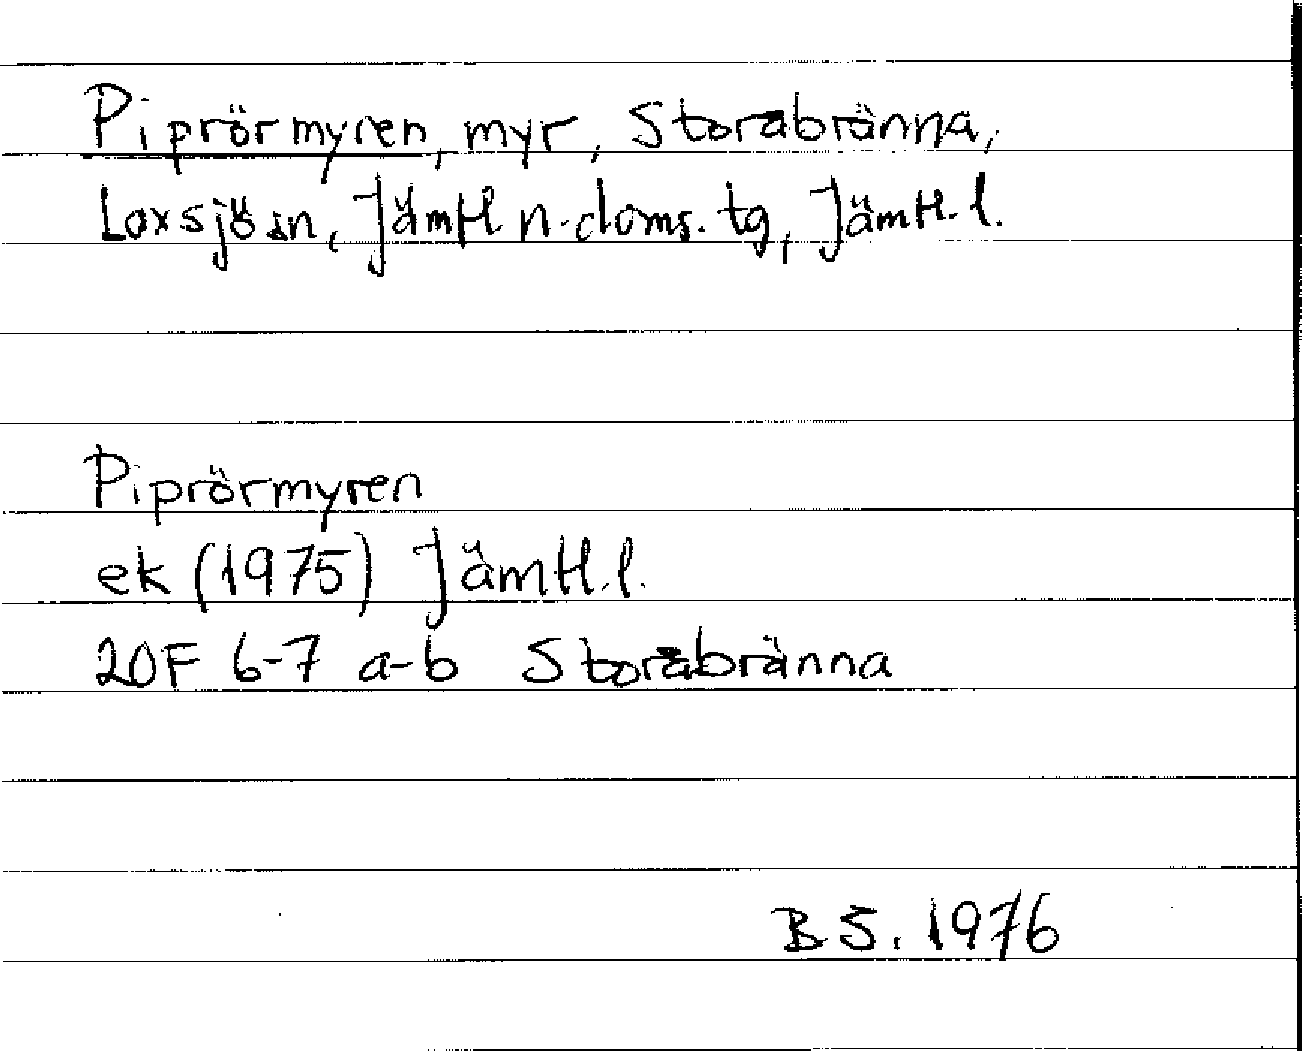 Piprörmyren, myr, Storabränna,
Laxsjö sn, Jämtl. n. doms. tg, Jämtl. l.
Piprörmyren
ek (1975) Jämtl. l.
20F 6-7 a-b Storabränna
B S. 1976